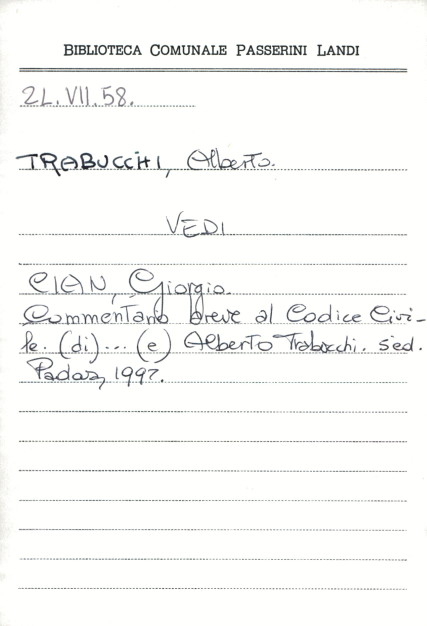 BIBLIOTECA COMUNALE PASSERINI LANDI
2L.VII.58.
TRABUCCHI, Alberto.
VEDI
CIAN, Giorgio.
Commentario breve al Codice Civi-
le. (di)... (e) Alberto Trabucchi. 5ed.
Padova, 1997.